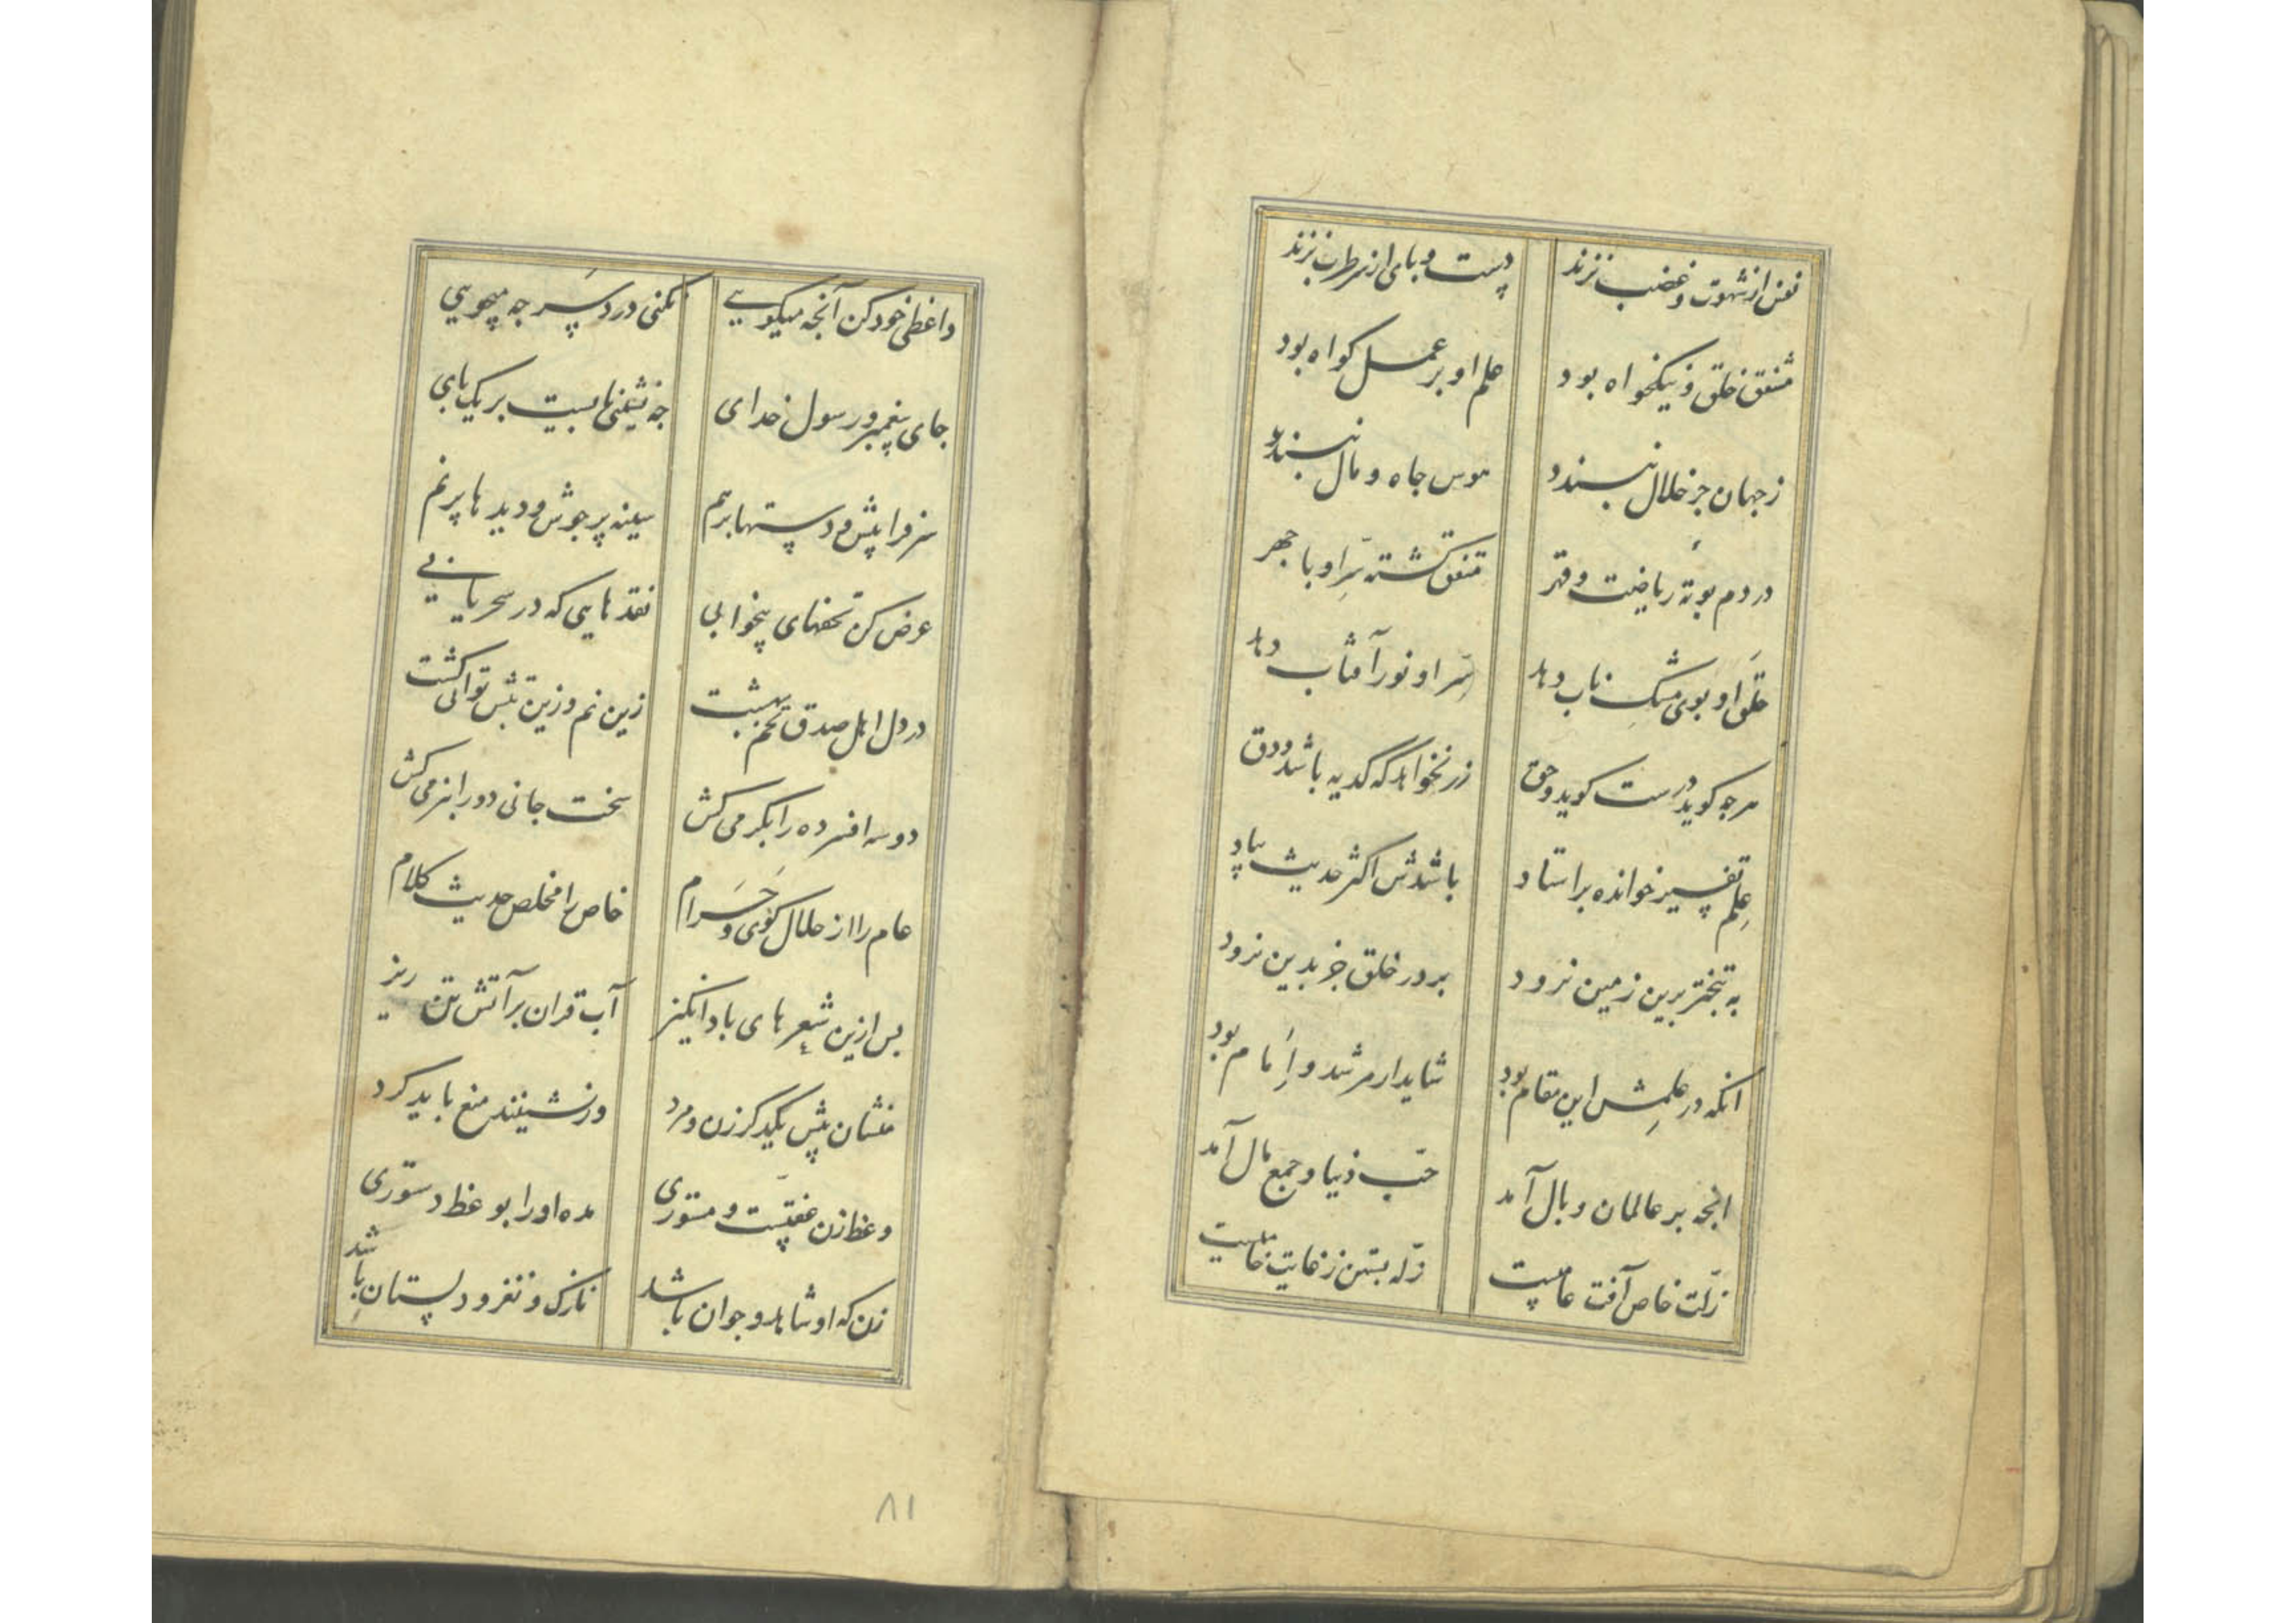 نفس از شهوت و غضب نزند
دست و پای از سر طرب نزند
مشفق خلق و نیکخواه بود
علم او بر عمل کواه بود
ز جهان جز حلال نپسندد
هوس جاه و مال نپسندد
در دم بوته ریاضت و قهر
متفق کشته سِرّ او با جهر
خلق او بوی مشک ناب دهد
سِرّ او نور آفتاب دهد
هرچه کوید درست کوید و حق
زر نخواهد که کدیه باشد و دق
علم تفسیر خوانده بر استاد
باشدش اکثر حدیث بیاد
به تبختر برین زمین نرود
بر در خلق جز بدین نرود
انکه در علمش این مقام بود
شاید ار مرشد و اِمام بود
انچه بر عالمان وبال آمد
حبّ دنیا و جمع مال آمد
زلّت خاص آفت عامیست
زلّه بستن ز غایت خامیست
واعظی خود کن آنچه میکویی
نکنی دردسر چه میجویی
جای پیغمبر و رسول خدای
چه نشینی بایست بر یک پای
سر فرا پیش و دستها بر هم
سینه پر جوش و دیدها پر نم
عرض کن تحفهای بیخوابی
نقدهایی که در سحر یابی
در دل اهل صدق تخم بهشت
زین نم و زین تبش توانی کشت
دو سه افسرده را بکر می کش
سخت جانی دو را بنرمی کش
عام را از حلال کوی و حَرام
خاص را مخلص حدیث کلام
بس ازین شعرهای باد انکیز
آب قران بر آتش تن ریز
منشان پیش یکدکر زن و مرد
ور نشینند منع باید کرد
وعظ زن عفّتست و مستوری
مده او را بوعظ دستوری
زن که او شاهد و جوان باشد
نازک و نغز و دلستان باشد
۸۱